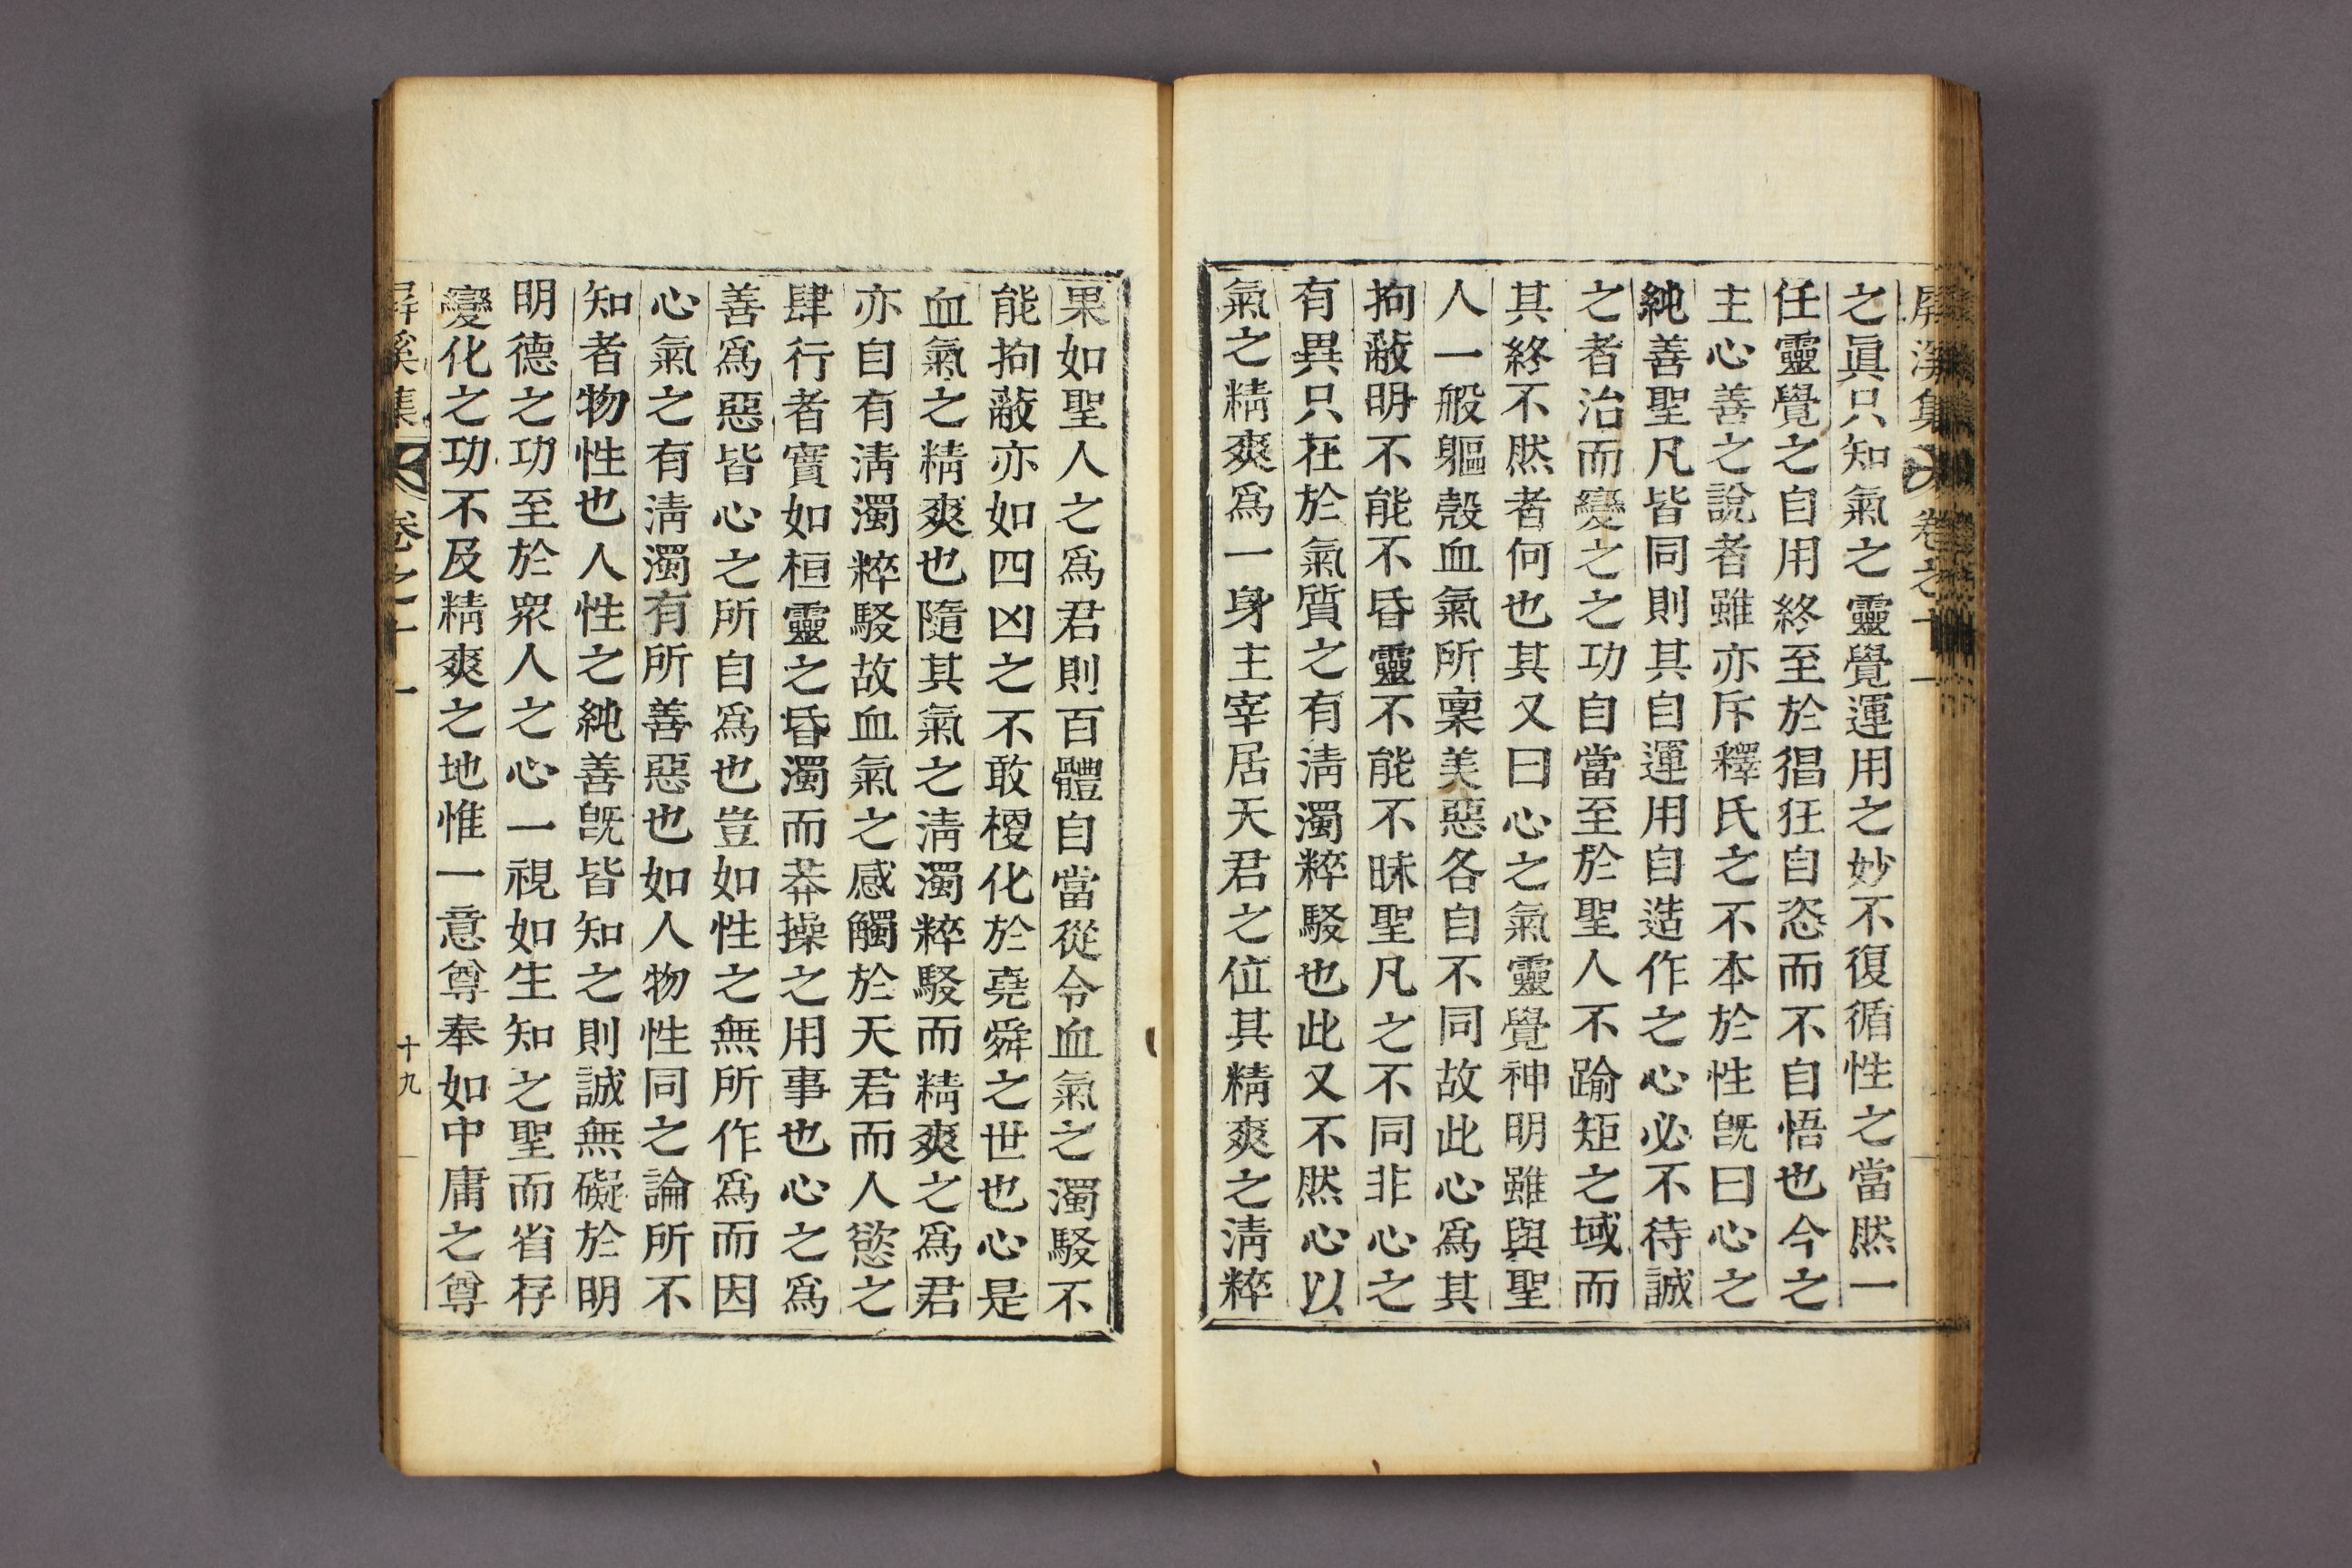 屛溪集 卷之十一
之眞只知氣之靈覺運用之妙不復循性之當然一
任靈覺之自用終至於猖狂自恣而不自悟也今之
主心善之說者雖亦斥釋氏之不本於性旣曰心之
純善聖凡皆同則其自運用自造作之心必不待誠
之者治而變之之功自當至於聖人不踰矩之域而
其終不然者何也其又曰心之氣靈覺神明雖與聖
人一般軀殼血氣所稟美惡各自不同故此心爲其
拘蔽明不能不昏靈不能不昧聖凡之不同非心之
有異只在於氣質之有淸濁粹駁也此又不然心以
氣之精爽爲一身主宰居天君之位其精爽之淸粹
果如聖人之爲君則百體自當從令血氣之濁駁不
能拘蔽亦如四凶之不敢梗化於堯舜之世也心是
血氣之精爽也隨其氣之淸濁粹駁而精爽之爲君
亦自有淸濁粹駁故血氣之感觸於天君而人慾之
肆行者實如桓靈之昏濁而莽操之用事也心之爲
善爲惡皆心之所自爲也豈如性之無所作爲而因
心氣之有淸濁有所善惡也如人物性同之論所不
知者物性也人性之純善旣皆知之則誠無礙於明
明德之功至於衆人之心一視如生知之聖而省存
變化之功不及精爽之地惟一意尊奉如中庸之尊
屛溪集 卷之十一 十九